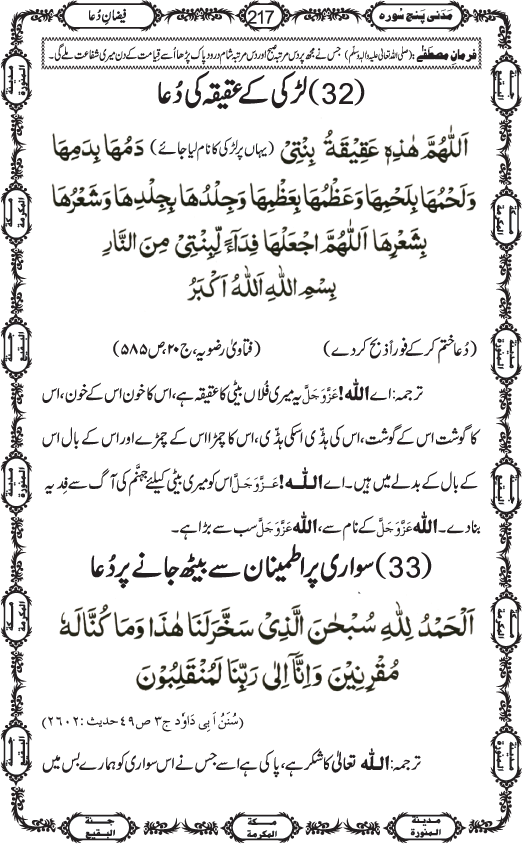 مَدَنی پنج سورہ
217
فیضانِ دُعا
فرمانِ مصطفٰے : (صلی اللہ تعالیٰ علیہ والہ وسلم) جس نے مجھ پر دس مرتبہ صبح اور دس مرتبہ شام درود پاک پڑھا اُسے قیامت کے دن میری شفاعت ملے گی۔
(32) لڑکی کے عقیقہ کی دُعا
اَللّٰهُمَّ هٰذِهٖ عَقِيْقَةُ بِنْتِىْ (یہاں پر لڑکی کا نام لیا جائے) دَمُهَا بِدَمِهَا
وَلَحْمُهَا بِلَحْمِهَا وَعَظْمُهَا بِعَظْمِهَا وَجِلْدُهَا بِجِلْدِهَا وَشَعْرُهَا
بِشَعْرِهَا اَللّٰهُمَّ اجْعَلْهَا فِدَآءً لِّبِنْتِىْ مِنَ النَّارِ
بِسْمِ اللّٰهِ اَللّٰهُ اَكْبَرُ
(دُعا ختم کر کے فوراً ذبح کر دے) (فتاویٰ رضویہ، ج۲۰، ص۵۸۵)
ترجمہ: اے اللّٰہ! عَزَّوَجَلَّ یہ میری فُلاں بیٹی کا عقیقہ ہے، اس کا خون اس کے خون، اس
کا گوشت اس کے گوشت، اس کی ہڈی اسکی ہڈی، اس کا چمڑا اس کے چمڑے اور اس کے بال اس
کے بال کے بدلے میں ہیں۔ اے اللّٰہ! عَزَّوَجَلَّ اس کو میری بیٹی کیلئے جہنَّم کی آگ سے فِدیہ
بنا دے۔ اللّٰہ عَزَّوَجَلَّ کے نام سے، اللّٰہ عَزَّوَجَلَّ سب سے بڑا ہے۔
(33) سواری پر اطمینان سے بیٹھ جانے پر دُعا
اَلْحَمْدُ لِلّٰهِ سُبْحٰنَ الَّذِىْ سَخَّرَ لَنَا هٰذَا وَمَا كُنَّا لَهٗ
مُقْرِنِيْنَ وَاِنَّآ اِلٰى رَبِّنَا لَمُنْقَلِبُوْنَ
(سُنَنُ اَبِی دَاوٗد ج۳ ص۴۹ حدیث :۲۶۰۲)
ترجمہ: اللّٰہ تعالیٰ کا شکر ہے، پاکی ہے اسے جس نے اس سواری کو ہمارے بس میں
مدینة المنورة
جنة البقيع
مكة المكرمة
مدينة المنورة
جنة البقيع
مدينة المنورة
جنة البقيع
مكة المكرمة
مدينة المنورة
جنة البقيع
مكة المكرمة
مدينة المنورة
جنة البقيع
مكة المكرمة
مدينة المنورة